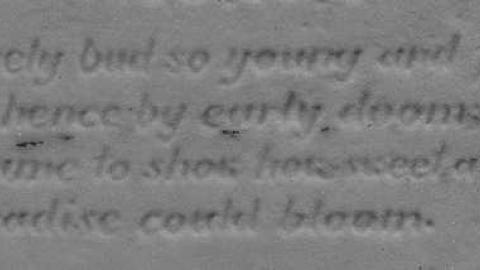 ely bud so young and
hence by early doom
ame to show how sweet a
radise could bloom.